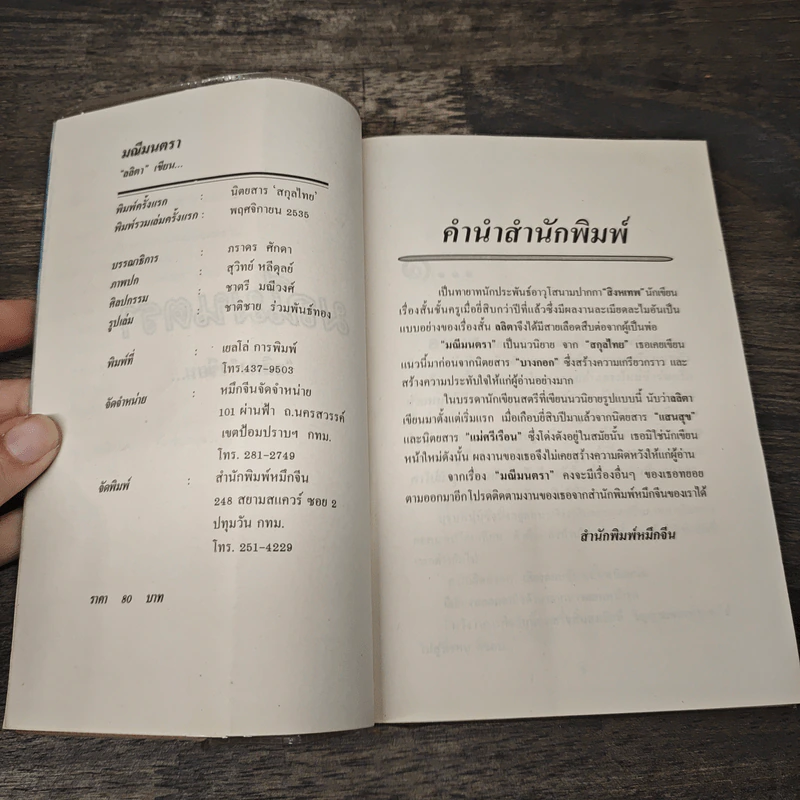 มณีมนตรา
"ลลิตา" เขียน...
พิมพ์ครั้งแรก : นิตยสาร 'สกุลไทย'
พิมพ์รวมเล่มครั้งแรก : พฤศจิกายน 2535
บรรณาธิการ : ภราดร ศักดา
ภาพปก : สุวิทย์ หลีดุลย์
ศิลปกรรม : ชาตรี มณีวงศ์
รูปเล่ม : ชาติชาย ร่วมพันธ์ทอง
พิมพ์ที่ : เยลโล่ การพิมพ์
โทร.437-9503
จัดจำหน่าย : หมึกจีนจัดจำหน่าย
101 ผ่านฟ้า ถ.นครสวรรค์
เขตป้อมปราบฯ กทม.
โทร. 281-2749
จัดพิมพ์ : สำนักพิมพ์หมึกจีน
248 สยามสแควร์ ซอย 2
ปทุมวัน กทม.
โทร. 251-4229
ราคา 80 บาท
คำนำสำนักพิมพ์
เป็นทายาทนักประพันธ์อาวุโสนามปากกา"สิงหเทพ"นักเขียน
เรื่องสั้นชั้นครูเมื่อยี่สิบกว่าปีที่แล้วซึ่งมีผลงานละเมียดละไมอันเป็น
แบบอย่างของเรื่องสั้น ลลิตาจึงได้สายเลือดสืบต่อจากผู้เป็นพ่อ
"มณีมนตรา" เป็นนวนิยาย จาก "สกุลไทย" เธอเคยเขียน
แนวนี้มาก่อนจากนิตยสาร "บางกอก" ซึ่งสร้างความเกรียวกราว และ
สร้างความประทับใจให้แก่ผู้อ่านอย่างมาก
ในบรรดานักเขียนสตรีที่เขียนนวนิยายรูปแบบนี้ นับว่าลลิตา
เขียนมาตั้งแต่เริ่มแรก เมื่อเกือบยี่สิบปีมาแล้วจากนิตยสาร "แสนสุข"
และนิตยสาร "แม่ศรีเรือน" ซึ่งโด่งดังอยู่ในสมัยนั้น เธอมิใช่นักเขียน
หน้าใหม่ดังนั้น ผลงานของเธอจึงไม่เคยสร้างความผิดหวังให้แก่ผู้อ่าน
จากเรื่อง "มณีมนตรา" คงจะมีเรื่องอื่นๆ ของเธอทยอย
ตามออกมาอีกโปรดติดตามงานของเธอจากสำนักพิมพ์หมึกจีนของเราได้
สำนักพิมพ์หมึกจีน